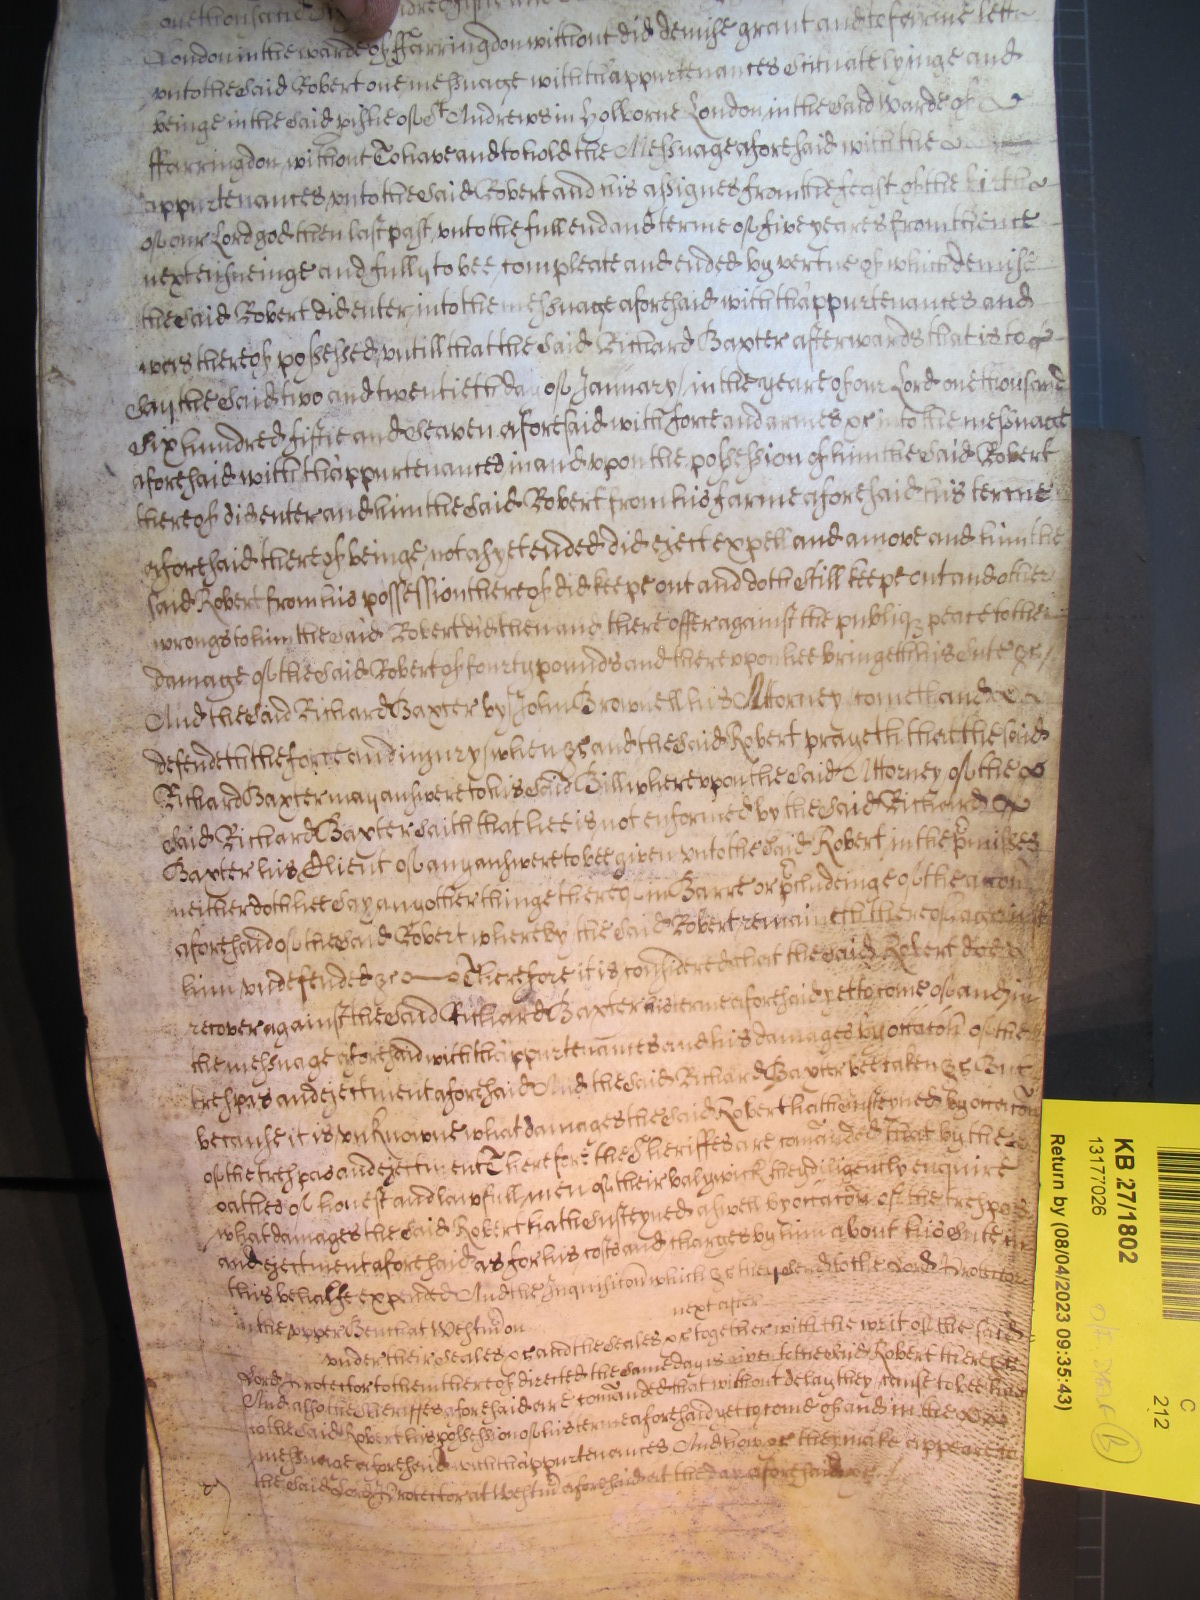 London in the warde of ffarringdon without did demise grant and to ferme lett
unto the said Robert one messuage with th'appurtenances scituate lyinge and
beinge in the said pishe of St Andrewes in Holborne London in the said warde of
ffarringdon without To have and to hold the Messuage aforesaid with the
appurtenances unto the said Robert and his assignes from the feast of the birth
of our Lord god then last past unto the full end and terme of five yeares from thence
next ensueinge and fully to bee compleate and ended by vertue of which demise
the said Robert did enter into the messuage aforesaid with th'appurtenances and
was thereof possessed untill that the said Richard Baxter afterwards that is to
say the said two and twentieth day of January in the yeare of our Lord one thousand
six hundred fiftie and seaven aforesaid with force and armes &c into the messuage
aforesaid with th'appurtenances in and upon the possession of him the said Robert
thereof did enter and him the said Robert from his farme aforesaid his terme
aforesaid thereof beinge not as yet ended did eject expell and amove and him the
said Robert from his possession thereof did keepe out and doth still keepe out and other
wrongs to him the said Robert did then and there offer against the publiq peace to the
damage of the said Robert of fourty pounds and thereupon hee bringeth his suite &c
And the said Richard Baxter by John Brownell his Attorney cometh and
defendeth the force and injury when &c and the said Robert prayeth that the said
Richard Baxter may answere to his said Bill whereupon the said Attorney of the
said Richard Baxter saith that hee is not enformed by the said Richard
Baxter his Client of any answere to bee given unto the said Robert in the pmisses
neither doth hee say any other thinge thereof in Barre or pcludeinge of the accon
aforesaid of the said Robert whereby the said Robert remaineth thereof against
him undefended &c Therefore it is considered that the said Robert doe
recover against the said Richard Baxter his terme aforesaid yet to come of and in
the messuage aforesaid with th'appurtenances and his damages by occacon of the
trespas and ejectment aforesaid And the said Richard Baxter bee taken &c But
because it is unknowne what damages the said Robert hath susteyned by occacon
of the trespas and ejectment Therefore the Sheriffes are comanded that by the
oathes of honest and lawfull men of their balywick they diligently enquire
what damages the said Robert hath susteyned aswell by occacon of the trespas
and ejectment aforesaid as for his costs and charges by him about his suite in
this behalfe expended And the Inquisicon which &c they send to the Lord Protector
in the upper Bench at Westm on next after
under their seales &c and the seales &c together with the writ of the said
Lord Protector to them thereof directed the same day is given to the said Robert there &c
And also the Sheriffes aforesaid are comanded that without delay they cause to bee
to the said Robert his possession of his terme aforesaid yet to come of and in the
messuage aforesaid with th'appurtenances And how &c they make appeare to
the said Lord Protector at Westm aforesaid at the day aforesaid &c
KB 27/1802
13177026
Return by (08/04/2023 09:35:43)
C
212